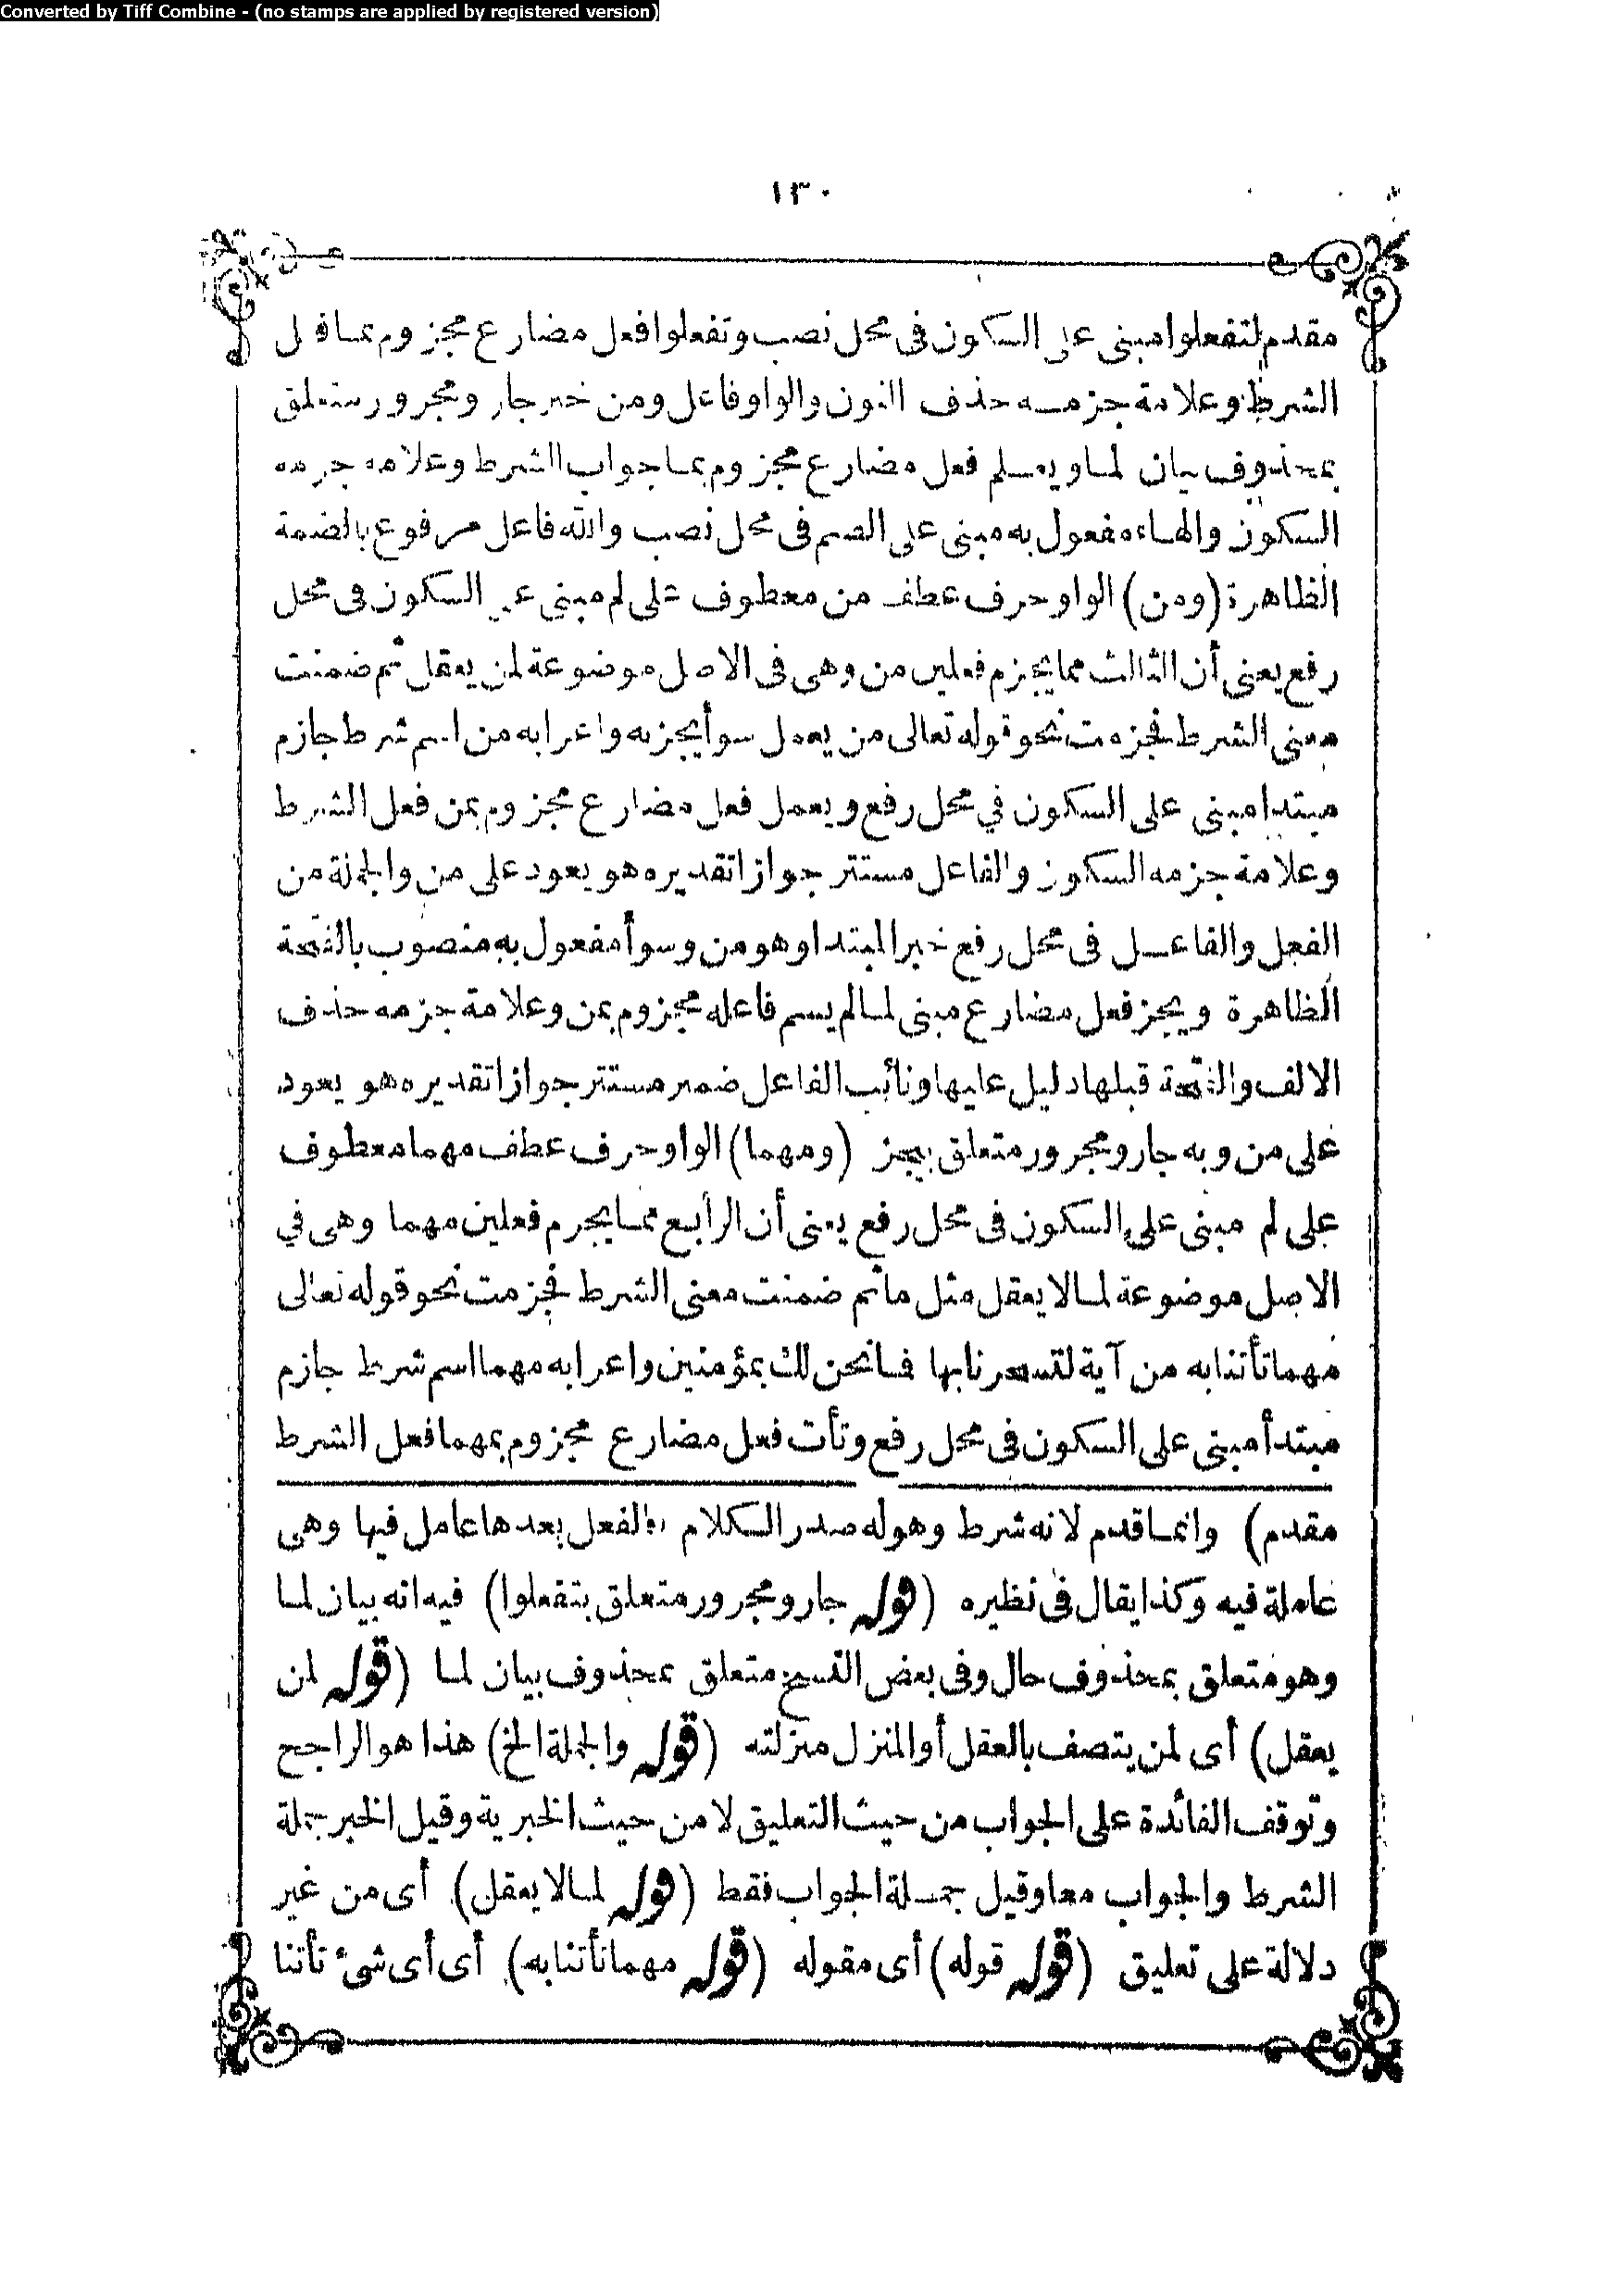 Converted by Tiff Combine - (no stamps are applied by registered version)
١٣٠
مقدم لتفعلوا مبنى على السكون فى محل نصب وتفعلوا فعل مضارع مجزوم بما فعل
الشرط وعلامة جزمه حذف النون والواو فاعل ومن خير جار ومجرور متعلق
بمحذوف بيان لما ويعلم فعل مضارع مجزوم بما جواب الشرط وعلامه جزمه
السكون والهاء مفعول به مبنى على الضم فى محل نصب والله فاعل مرفوع بالضمة
الظاهرة (ومن) الواو حرف عطف من معطوف على لم مبنى على السكون فى محل
رفع يعنى أن الثالث مما يجزم فعلين من وهى فى الاصل موضوعة لمن يعقل ثم ضمنت
معنى الشرط فجزمت نحو قوله تعالى من يعمل سوأ يجزبه واعرابه من اسم شرط جازم
مبتدا مبنى على السكون في محل رفع ويعمل فعل مضارع مجزوم بمن فعل الشرط
وعلامة جزمه السكون والفاعل مستتر جوازا تقديره هو يعود على من والجملة من
الفعل والفاعل فى محل رفع خبر المبتدا وهو من وسوأ مفعول به منصوب بالفتحة
الظاهرة ويجز فعل مضارع مبنى لما لم يسم فاعله مجزوم بمن وعلامة جزمه حذف
الالف والفتحة قبلها دليل عليها ونائب الفاعل ضمير مستتر جوازا تقديره هو يعود
على من وبه جار ومجرور متعلق بيجز (ومهما) الواو حرف عطف مهما معطوف
على لم مبنى على السكون فى محل رفع يعنى أن الرابع مما يجزم فعلين مهما وهى في
الاصل موضوعة لما لا يعقل مثل ما ثم ضمنت معنى الشرط فجزمت نحو قوله تعالى
مهما تأتنا به من آية لتسحرنا بها فما نحن لك بمؤمنين واعرابه مهما اسم شرط جازم
مبتدأ مبنى على السكون فى محل رفع وتأت فعل مضارع مجزوم بمهما فعل الشرط
مقدم) وانما قدم لانه شرط وهو له صدر الكلام والفعل بعدها عامل فيها وهى
عاملة فيه وكذا يقال فى نظيره (قوله جار ومجرور متعلق بتفعلوا) فيه انه بيان لما
وهو متعلق بمحذوف حال وفى بعض النسخ متعلق بمحذوف بيان لما (قوله لمن
يعقل) أى لمن يتصف بالعقل أو المنزل منزلته (قوله والجملة الخ) هذا هو الراجح
وتوقف الفائدة على الجواب من حيث التعليق لا من حيث الخبرية وقيل الخبر جملة
الشرط والجواب معا وقيل جملة الجواب فقط (قوله لما لا يعقل) أى من غير
دلالة على تعليق (قوله قوله) أى مقوله (قوله مهما تأتنا به) أى أى شئ تأتنا